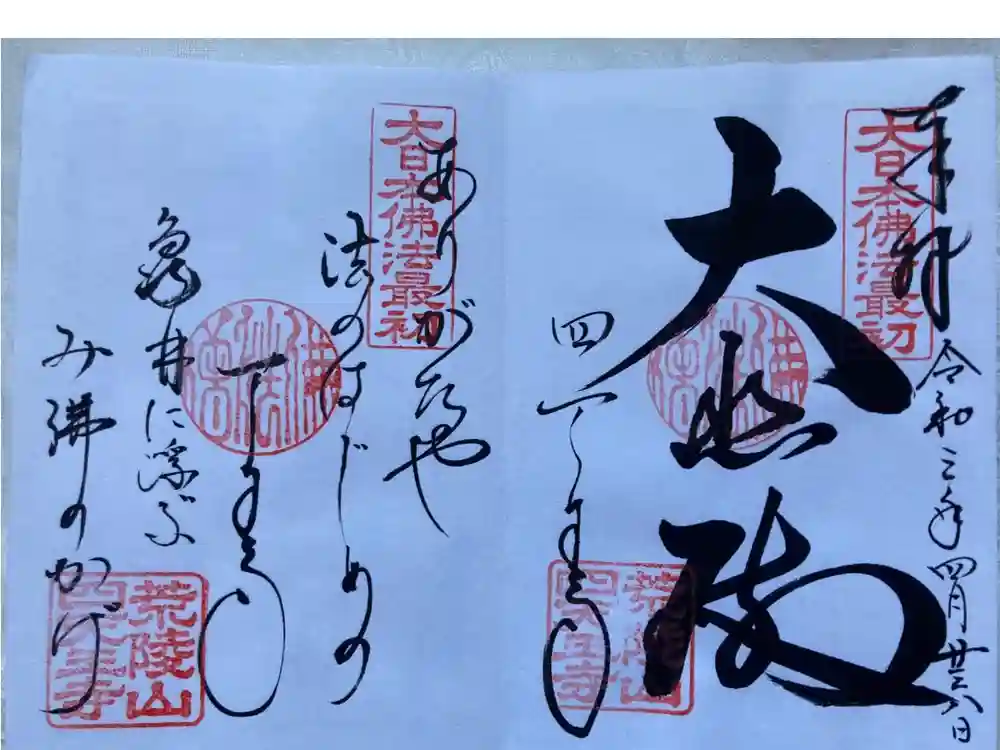 大日本佛法最初
奉拝
令和三年四月廿六日
大悲殿
四天王寺
荒陵山
四天王寺
大日本佛法最初
ありがたや
法のはじめの
天王寺
亀井に浮ぶ
み佛のかげ
荒陵山
四天王寺